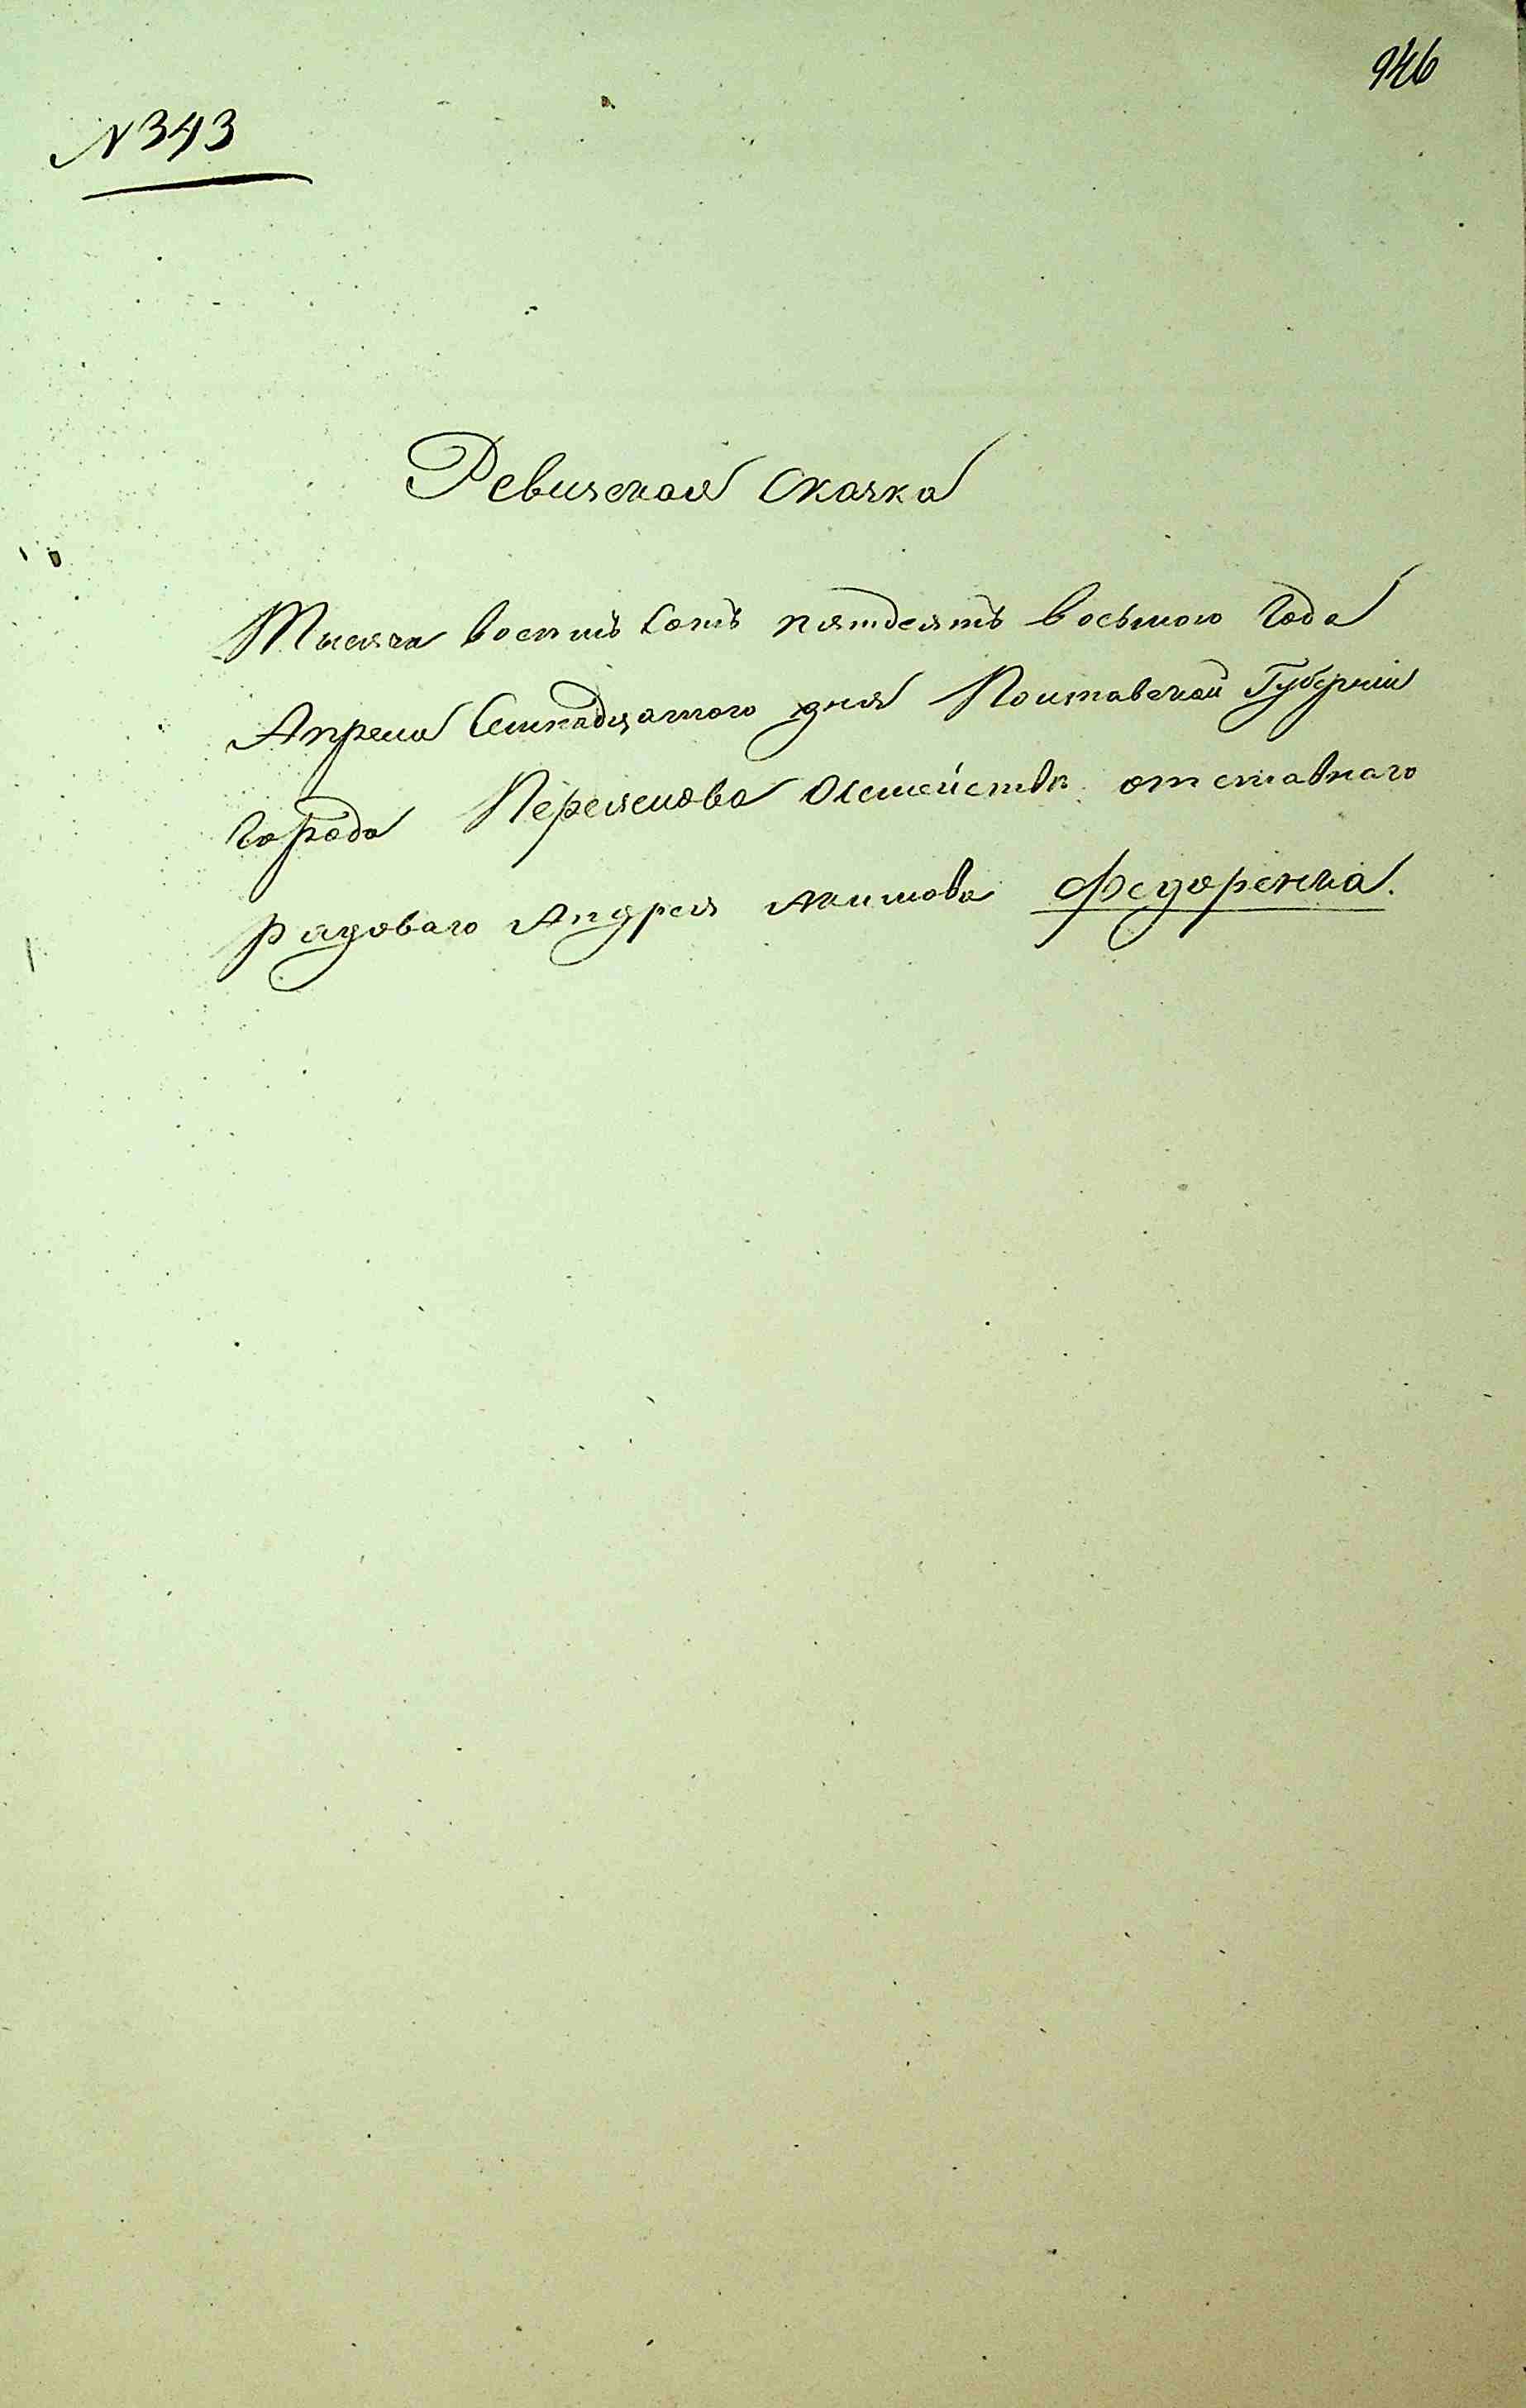 946
N 343
Ревизская Сказка
Тысяча восемь сотъ пятдесятъ восьмого Года
Апреля Семнадцатого дня Полтавской Губернии
города Переяслова Осемействе отставнаго
рядоваго Андрея Акимова Федоренка.